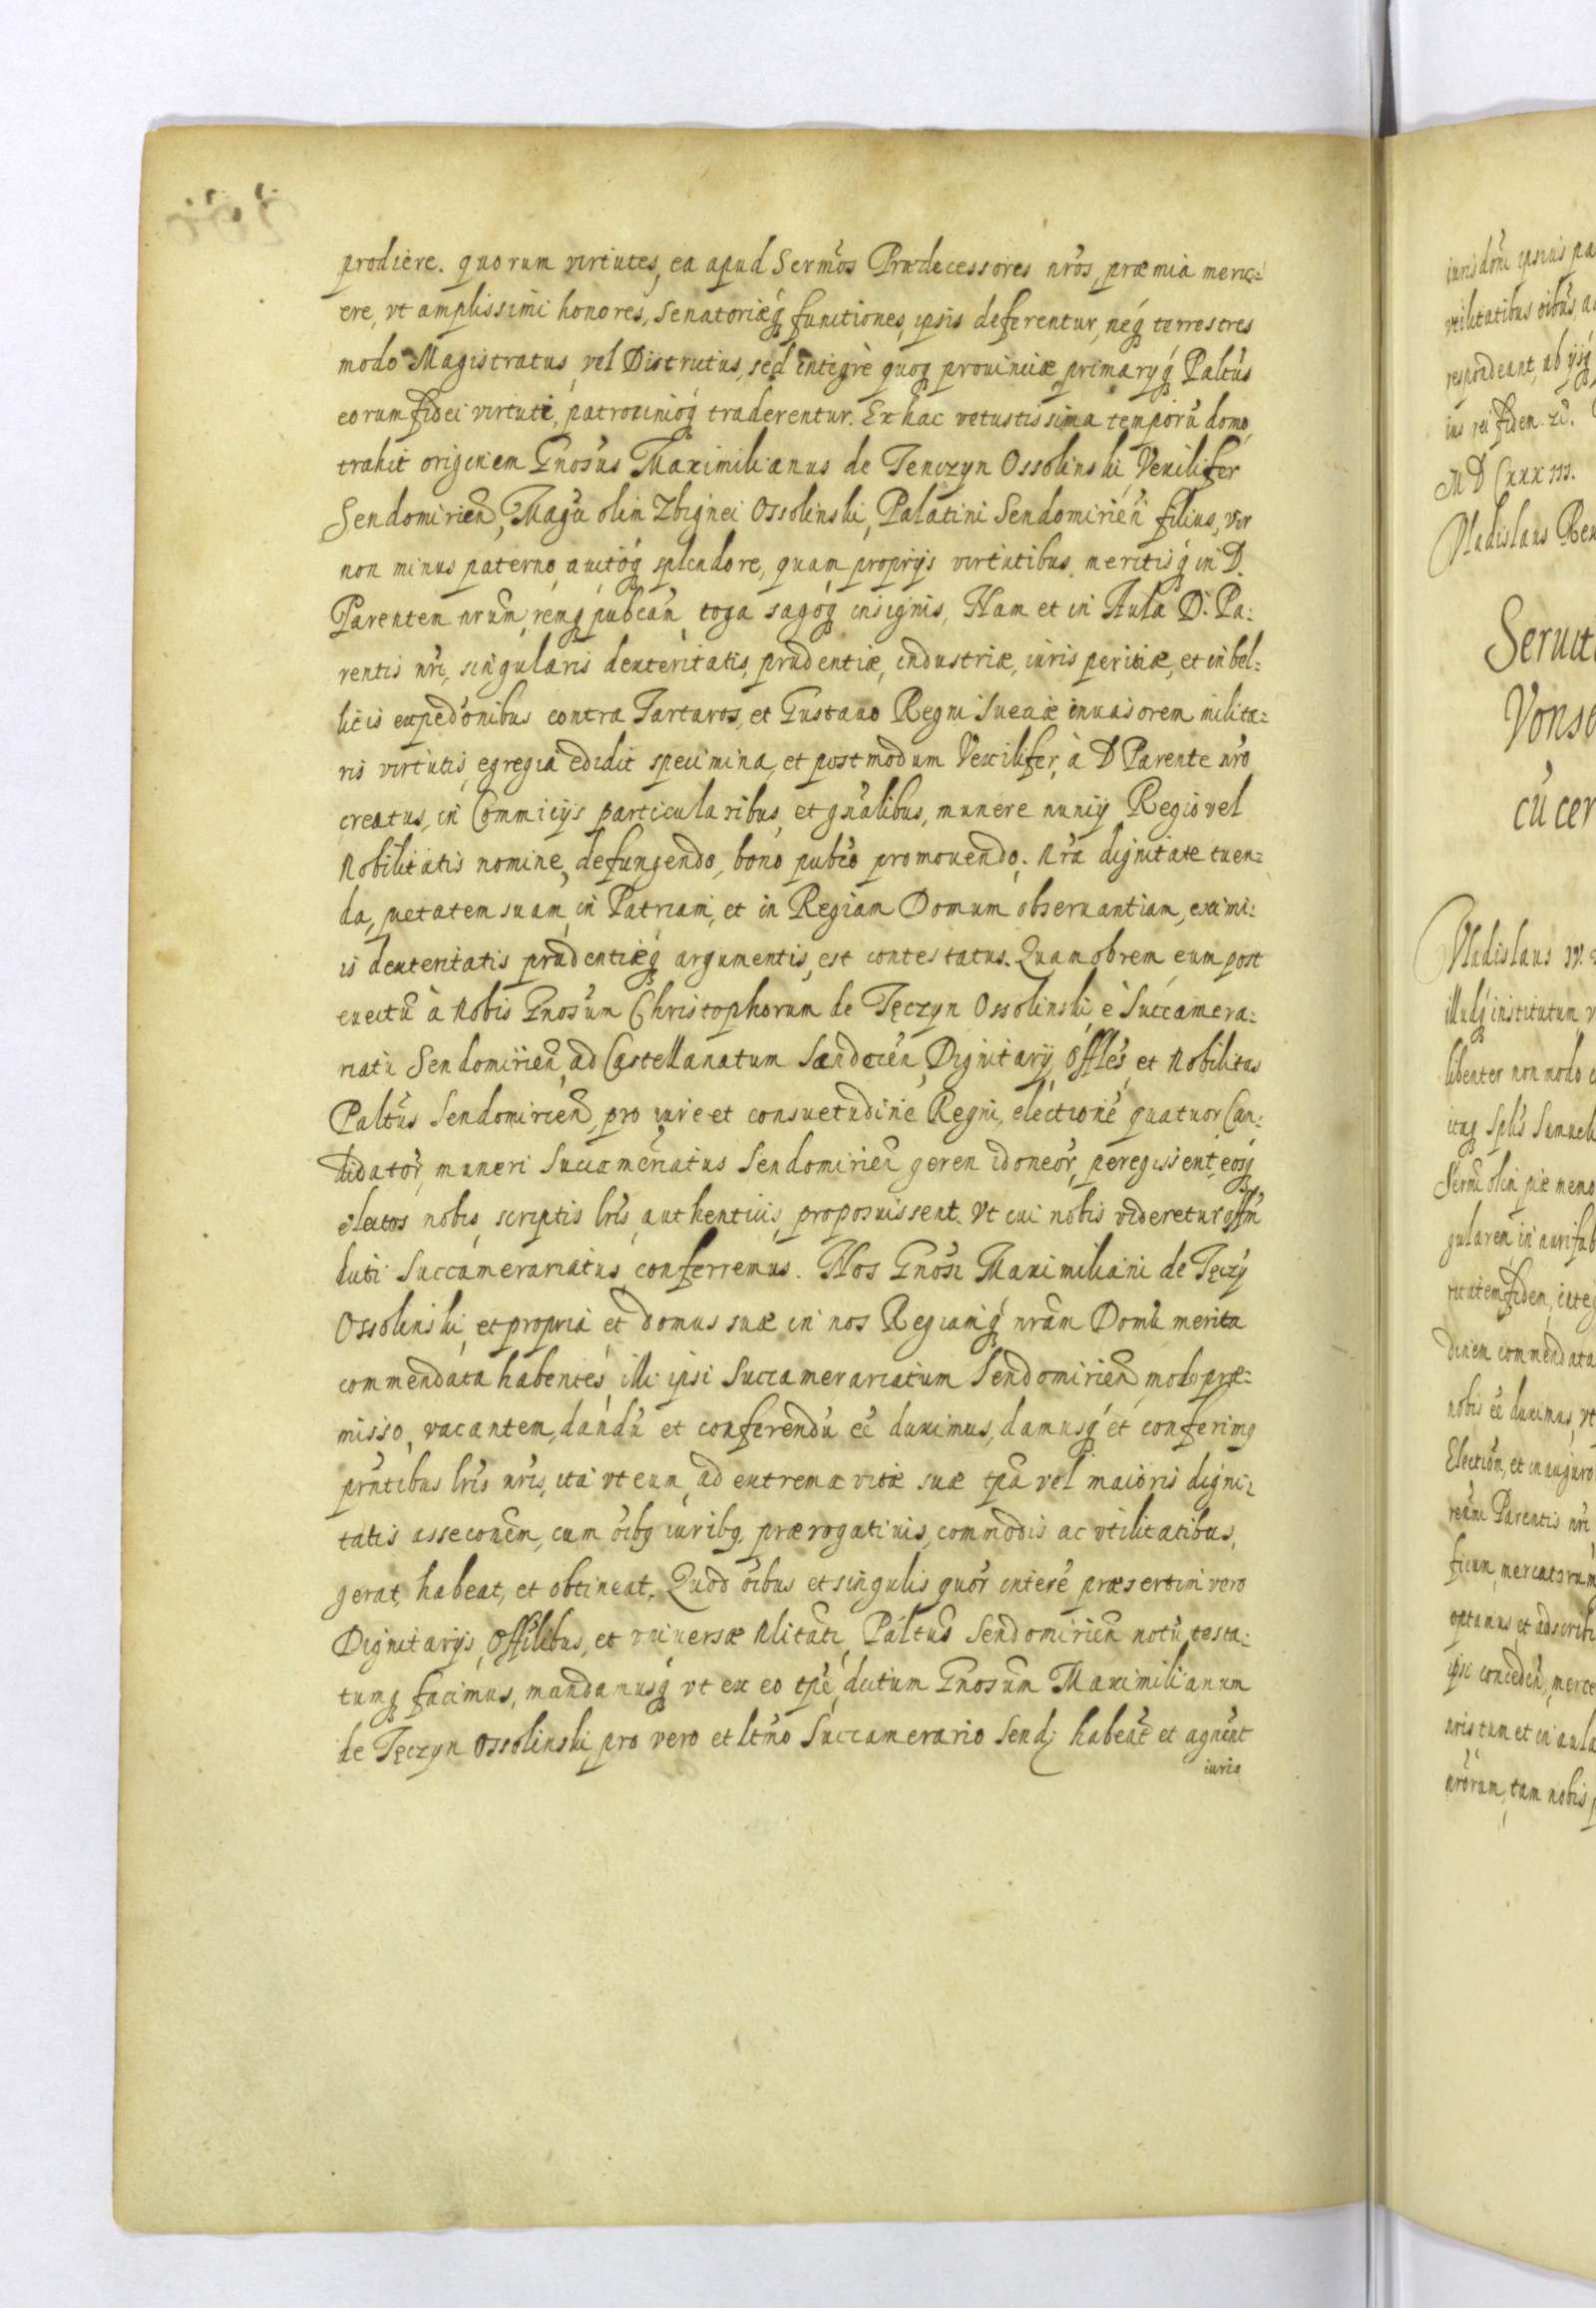 prodiere. quorum virtutes, ea apud Sermos Prædecessores nros, præmia meru=
ere, vt amplissimi honores, senatoriæq functiones, ipsis deferentur, neq terrestres
modo Magistratus, vel Districtus, sed integrè quoq prouinciæ primaryq Paltus
eorum fidei virtuti, patrocinioq traderentur. Ex hac vetustissima temporũ domo,
trahit originem Gnosus Maximilianus de Tenczyn Ossolinski, Vexilifer
Sendomirien, Magci olim Zbignei Ossolinski, Palatini Sendomirien filius, vir
non minus paterno, auitoq splendore, quam proprys virtutibus, meritisq in D.
Parentem nrum, remq pubcam toga sagoq insignis, Nam et in Aula D. Pa:
rentis nri, singularis dexteritatis, prudentiæ, industriæ, iuris peritiæ, et in bel:
licis expedonibus contra Tartaros, et Gustauo Regni Sueciæ inuasorem milita:
ris virtutis, egregia edidit specimina, et postmodum Vexilifer, à D Parente nro
creatus, in Commicijs particularibus, et gnalibus, munere nuncij Regio vel
Nobilitatis nomine, defungendo, bono pubco promouendo. Nra dignitate tuen:
da, pietatem suam in Patriam, et in Regiam Domum obseruantiam, eximi:
is dexteritatis prudentiæq argumentis, est contestatus. Quamobrem eum post
euectũ à Nobis Gnosum Christophorum de Tęczyn Ossolinski, è Succamera:
riatu Sendomirien, ad Castellanatum Sandocien, Dignitarij, Offles, et Nobilitas
Paltus Sendomirien, pro iure et consuetudine Regni, electione quatuor Can:
didator, muneri Succameriatus Sendomirien geren idoneor, peregissent, eosq
electos nobis, scriptis lris, authenticis, proposuissent. Vt cui nobis videretur offm
dicti Succamerariatus, conferremus. Nos Gnosi Maximiliani de Tęczy
Ossolinski, et propria et domus suæ in nos Regiamq nram Domũ merita
commendata habentes, illi ipsi Succamerariatum Sendomirien modo præ:
misso, vacantem, dandũ et conferendũ ee duximus, damusq et conferimq
prntibus lris nris, ita vt eum, ad extrema vitæ suæ tpa vel maioris digni:
tatis assecouem, cum oibq iuribq, prærogatiuis, commodis ac vtilitatibus,
gerat, habeat, et obtineat. Quod oibus et singulis quor intere præsertim vero
Dignitarijs, Offilibus, et vniuersæ Nlitati, Paltus Sendomirien notũ, testa:
tumq facimus, mandamusq vt ex eo tpe, dictum Gnosum Maximilianum
de Tęczyn Ossolinski, pro vero et ltmo Succamerario Send: habeat et agnent
iuris
iurisdoni ipsius pa
vtilitatibus oibus, a
respondeant, ab ijsq
ius rei fidem. &.
M D CXXX III.
Vladislaus Rex
Seruit
Vons
cũ cer
Vladislaus IV.
illudq institutum v
libenter non modo
itaq Splis Samueli
Sermi olim piæ memo
gularem in aurifab
ritatem fidem, integ
dinem commendata
nobis ee duximus, vt
Election, et inauguro
reumi Parentis nri
ficum, mercatorum
optamus, et adscribi
ipsi conceden, merce
uris tum et in aula
nrorum, tam nobis p